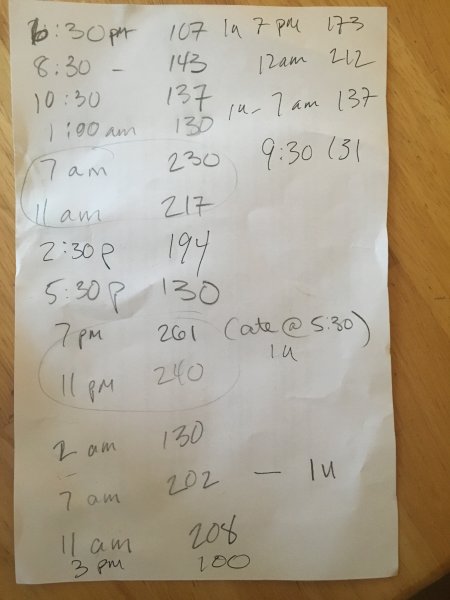 6:30pm 107
8:30 - 143
10:30 137
1:00am 130
7 am 230
11 am 217
2:30p 194
5:30p 130
7 pm 261 (ate @ 5:30)
1u
11 pm 240
2 am 130
7 am 202 — 1u
11 am 208
3 pm 100
1u 7 pm 173
12am 212
1u - 7 am 137
9:30 131